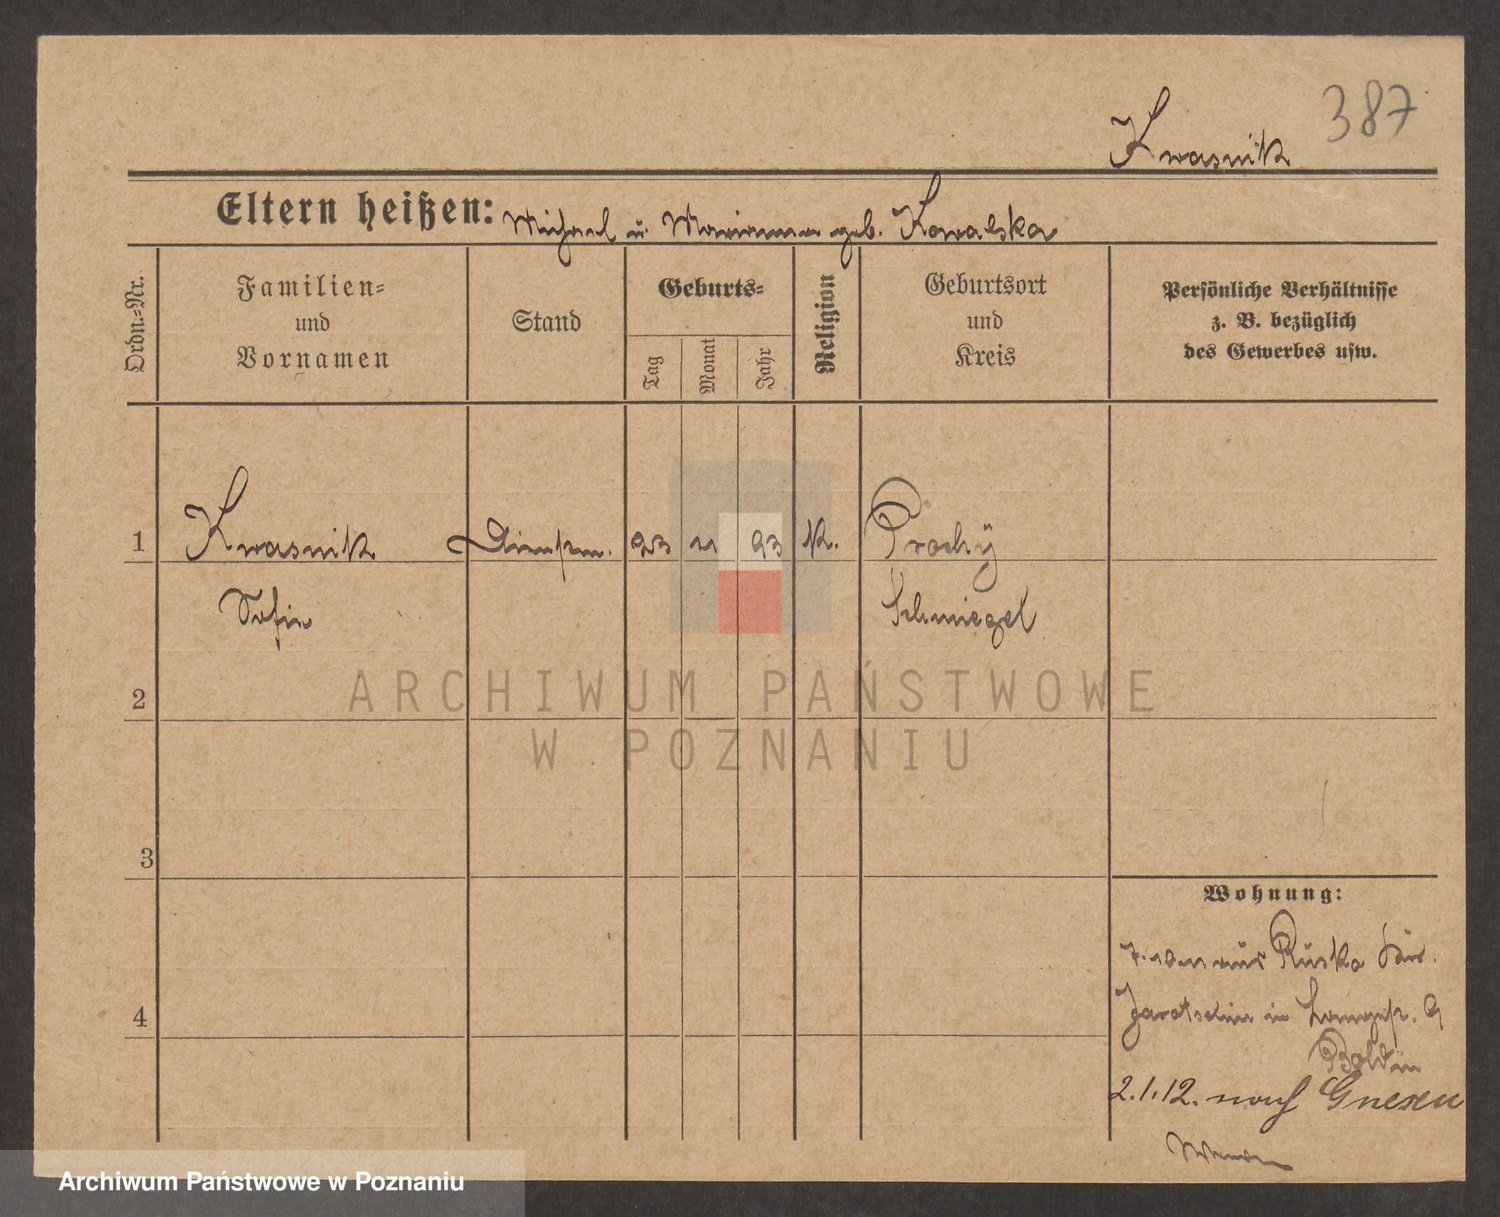 387
Kwasnik
Eltern heißen: Michael u. Marianna geb. Kowalska
Ordn.-Nr.
Familien-
und
Vornamen
Stand
Geburts-
Tag
Monat
Jahr
Religion
Geburtsort
und
Kreis
Persönliche Verhältnisse
z. B. bezüglich
des Gewerbes usw.
1 Kwasnik Dienstm. 23 11 93 K. Prochÿ
Sofie Schmiegel
2
3
4
Wohnung:
Ruska
Jarotschin in Langestr. 9
2.1.12. nach Gnesen
ARCHIWUM PAŃSTWOWE
W POZNANIU
Archiwum Państwowe w Poznaniu